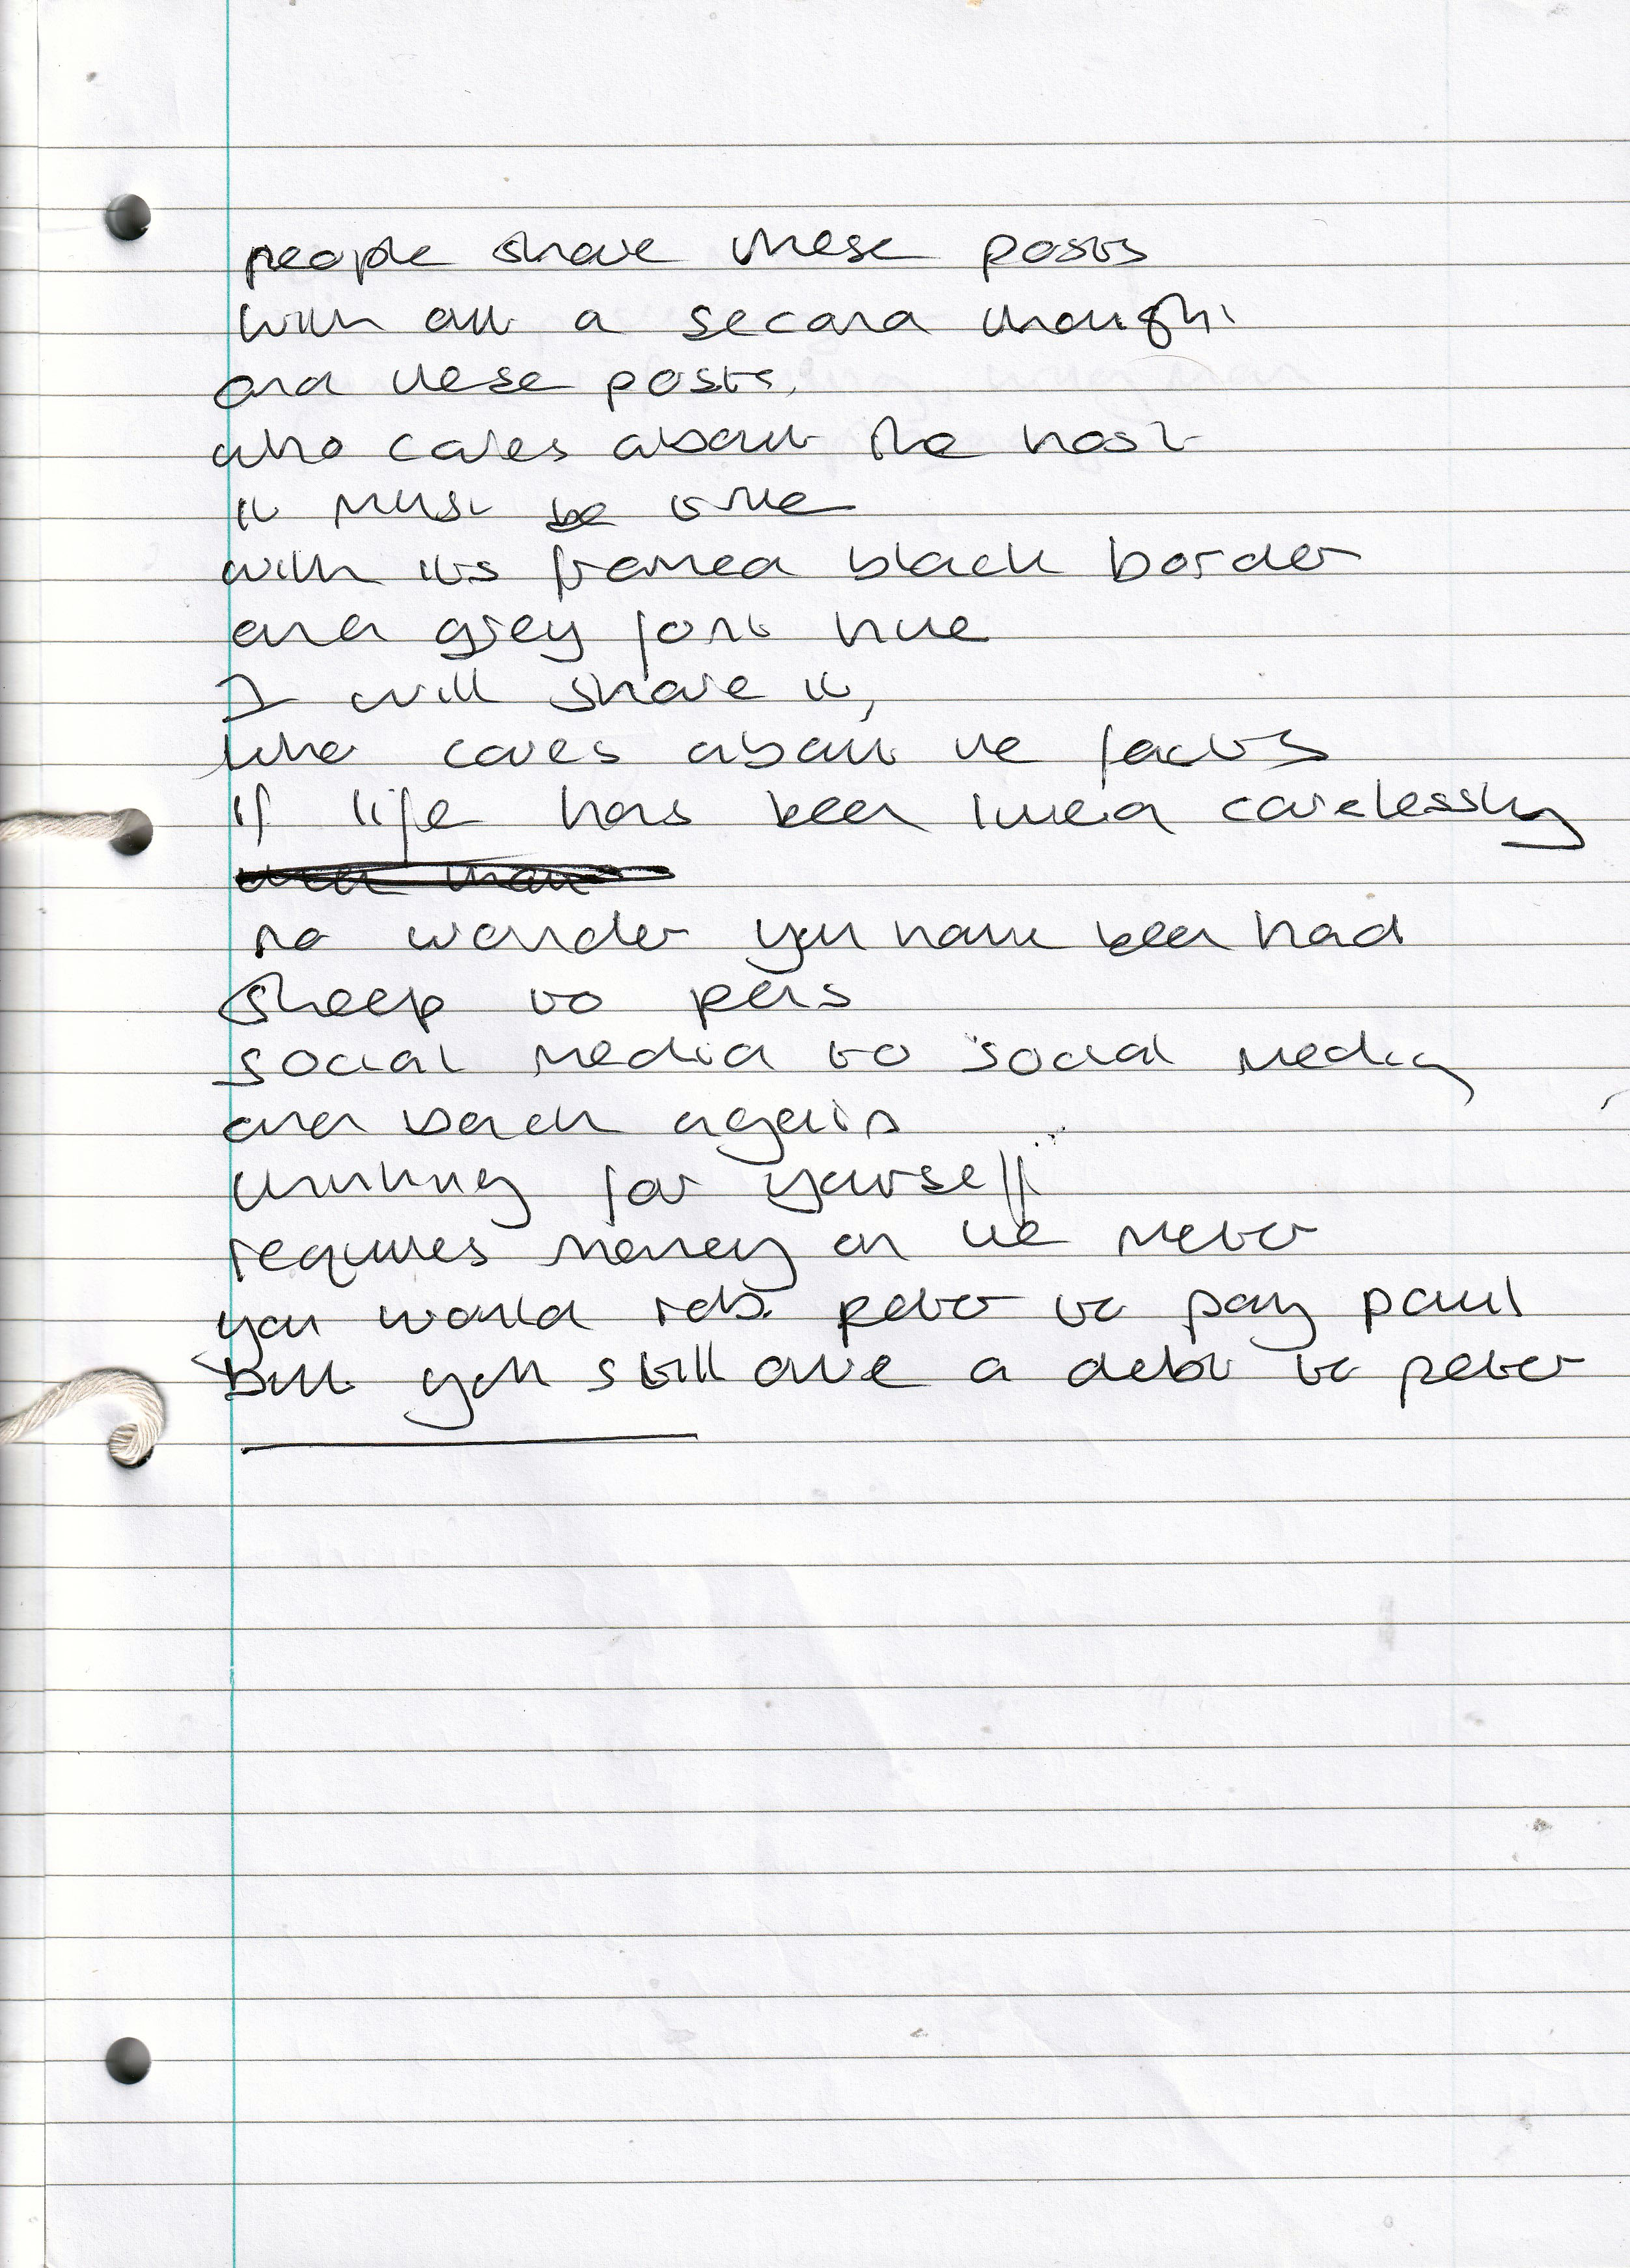 people share these posts
with out a second thought
and these posts,
who cares about the host
it must be true
with its framed black border
and grey font hue
I will share it,
who cares about the facts
if life has been lived carelessly
no wonder you have been had
sheep to pens
social media to social media
and back again
thinking for yourself...
requires money on the meter
you would rob peter to pay paul
but you still owe a debt to peter